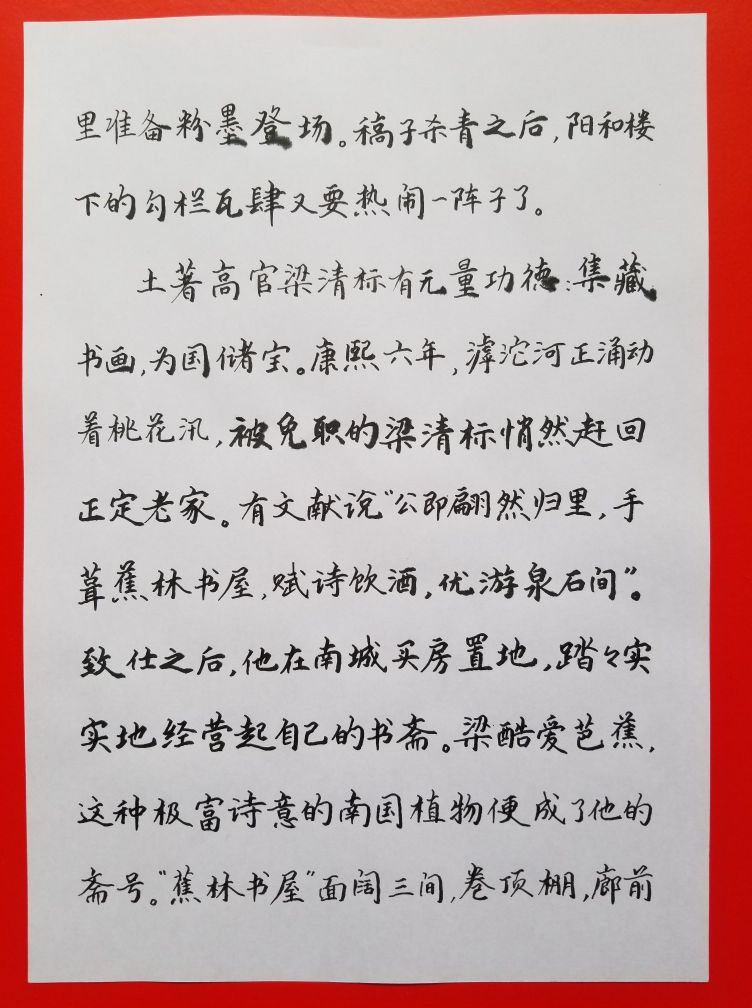 里准备粉墨登场。稿子杀青之后,阳和楼
下的勾栏瓦肆又要热闹一阵子了。
土著高官梁清标有无量功德:集藏
书画,为国储宝。康熙六年,滹沱河正涌动
着桃花汛,被免职的梁清标悄然赶回
正定老家。有文献说“公即翩然归里,手
葺蕉林书屋,赋诗饮酒,优游泉石间”。
致仕之后,他在南城买房置地,踏々实
实地经营起自己的书斋。梁酷爱芭蕉,
这种极富诗意的南国植物便成了他的
斋号。“蕉林书屋”面阔三间,卷顶棚,廊前